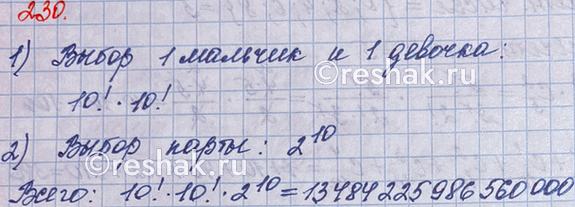 230.
1) Выбор 1 мальчик и 1 девочка:
10! · 10!
2) Выбор парты: 2^10
Всего: 10! · 10! · 2^10 = 13484225986560000
reshak.ru
reshak.ru
reshak.ru